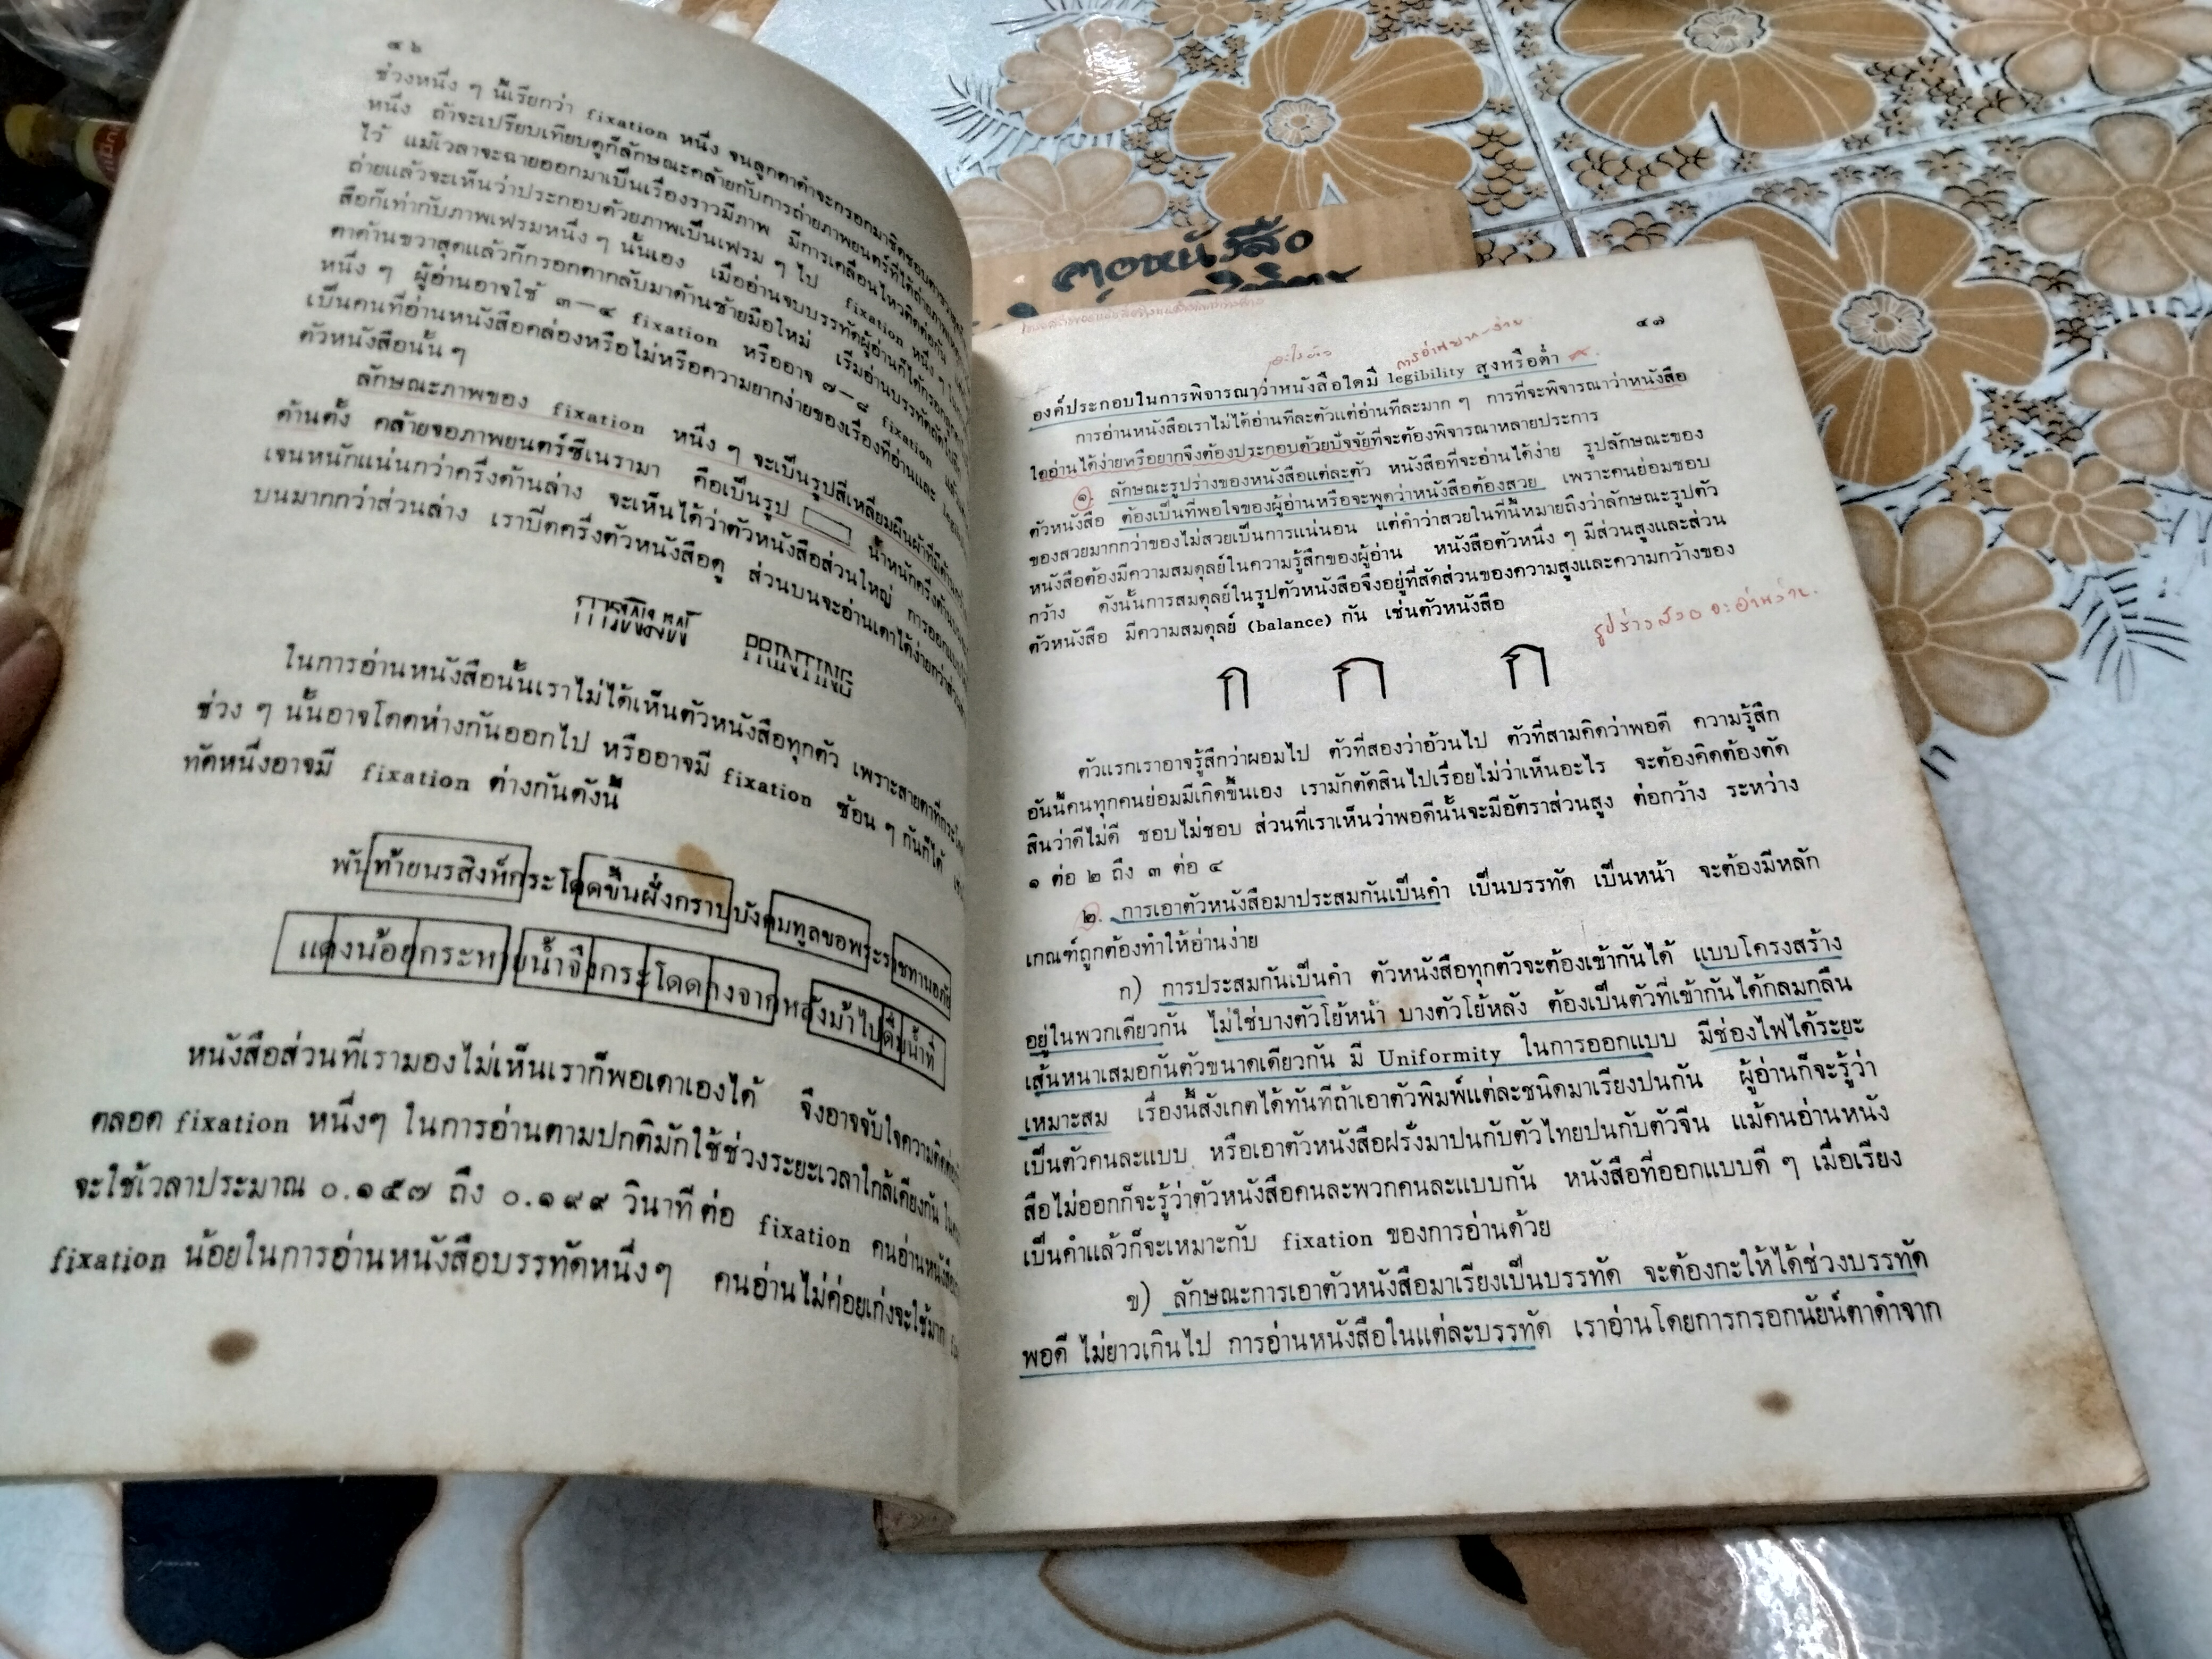 ๔๖
ช่วงหนึ่ง ๆ นี้เรียกว่า fixation หนึ่ง จนลูกตาดำจะกรอกมาชิดขอบตาขวาสุด
หนึ่ง ถ้าจะเปรียบเทียบดูก็ลักษณะคล้ายกับการถ่ายภาพยนตร์ที่ได้ถ่ายภาพ
ไว้ แม้เวลาจะฉายออกมาเป็นเรื่องราวมีภาพ มีการเคลื่อนไหวติดต่อกัน
ถ่ายแล้วจะเห็นว่าประกอบด้วยภาพเป็นเฟรม ๆ ไป fixation หนึ่ง ๆ
สือก็เท่ากับภาพเฟรมหนึ่ง ๆ นั้นเอง เมื่ออ่านจบบรรทัดผู้อ่านก็ได้กรอกลูก
ตาด้านขวาสุดแล้วก็กรอกตากลับมาด้านซ้ายมือใหม่ เริ่มอ่านบรรทัดถัดไปอีก
หนึ่ง ๆ ผู้อ่านอาจใช้ ๓—๔ fixation หรืออาจ ๗—๘ fixation แล้ว
เป็นคนที่อ่านหนังสือคล่องหรือไม่หรือความยากง่ายของเรื่องที่อ่านและ
ตัวหนังสือนั้น ๆ
ลักษณะภาพของ fixation หนึ่ง ๆ จะเป็นรูปสี่เหลี่ยมผืนผ้าที่มีด้าน
ด้านตั้ง คล้ายจอภาพยนตร์ซีเนรามา คือเป็นรูป น้ำหนักครึ่งด้านบน
เจนหนักแน่นกว่าครึ่งด้านล่าง จะเห็นได้ว่าตัวหนังสือส่วนใหญ่ การออกแบบ
บนมากกว่าส่วนล่าง เราปิดครึ่งตัวหนังสือดู ส่วนบนจะอ่านเดาได้ง่ายกว่าส่วน
การพิมพ์ PRINTING
ในการอ่านหนังสือนั้นเราไม่ได้เห็นตัวหนังสือทุกตัว เพราะสายตาที่กระโดด
ช่วง ๆ นั้นอาจโดดห่างกันออกไป หรืออาจมี fixation ซ้อน ๆ กันก็ได้
ทัดหนึ่งอาจมี fixation ต่างกันดังนี้
พันท้ายนรสิงห์กระโดดขึ้นฝั่งกราบบังคมทูลขอพระราชทานอภัย
แดงน้อยกระหายน้ำจึงกระโดดลงจากหลังม้าไปดื่มน้ำที่
หนังสือส่วนที่เรามองไม่เห็นเราก็พอเดาเองได้ จึงอาจจับใจความติดต่อ
ตลอด fixation หนึ่งๆ ในการอ่านตามปกติมักใช้ช่วงระยะเวลาใกล้เคียงกัน
จะใช้เวลาประมาณ ๐.๑๕๗ ถึง ๐.๑๙๙ วินาที ต่อ fixation คนอ่านหนังสือ
fixation น้อยในการอ่านหนังสือบรรทัดหนึ่งๆ คนอ่านไม่ค่อยเก่งจะใช้มาก
ตอหนังสือ
๔๗
การอ่านยาก-ง่าย
องค์ประกอบในการพิจารณาว่าหนังสือใดมี legibility สูงหรือต่ำ
การอ่านหนังสือเราไม่ได้อ่านทีละตัวแต่อ่านทีละมาก ๆ การที่จะพิจารณาว่าหนังสือ
ใดอ่านได้ง่ายหรือยากจึงต้องประกอบด้วยปัจจัยที่จะต้องพิจารณาหลายประการ
๑. ลักษณะรูปร่างของหนังสือแต่ละตัว หนังสือที่จะอ่านได้ง่าย รูปลักษณะของ
ตัวหนังสือ ต้องเป็นที่พอใจของผู้อ่านหรือจะพูดว่าหนังสือต้องสวย เพราะคนย่อมชอบ
ของสวยมากกว่าของไม่สวยเป็นการแน่นอน แต่คำว่าสวยในที่นี้หมายถึงว่าลักษณะรูปตัว
หนังสือต้องมีความสมดุลย์ในความรู้สึกของผู้อ่าน หนังสือตัวหนึ่ง ๆ มีส่วนสูงและส่วน
กว้าง ดังนั้นการสมดุลย์ในรูปตัวหนังสือจึงอยู่ที่สัดส่วนของความสูงและความกว้างของ
ตัวหนังสือ มีความสมดุลย์ (balance) กัน เช่นตัวหนังสือ
รูปร่างสวย จะอ่านง่าย.
ก ก ก
ตัวแรกเราอาจรู้สึกว่าผอมไป ตัวที่สองว่าอ้วนไป ตัวที่สามคิดว่าพอดี ความรู้สึก
อันนี้คนทุกคนย่อมมีเกิดขึ้นเอง เรามักตัดสินไปเรื่อยไม่ว่าเห็นอะไร จะต้องคิดต้องตัด
สินว่าดีไม่ดี ชอบไม่ชอบ ส่วนที่เราเห็นว่าพอดีนั้นจะมีอัตราส่วนสูง ต่อกว้าง ระหว่าง
๑ ต่อ ๒ ถึง ๓ ต่อ ๔
๒. การเอาตัวหนังสือมาประสมกันเป็นคำ เป็นบรรทัด เป็นหน้า จะต้องมีหลัก
เกณฑ์ถูกต้องทำให้อ่านง่าย
ก) การประสมกันเป็นคำ ตัวหนังสือทุกตัวจะต้องเข้ากันได้ แบบโครงสร้าง
อยู่ในพวกเดียวกัน ไม่ใช่บางตัวโย้หน้า บางตัวโย้หลัง ต้องเป็นตัวที่เข้ากันได้กลมกลืน
เส้นหนาเสมอกันตัวขนาดเดียวกัน มี Uniformity ในการออกแบบ มีช่องไฟได้ระยะ
เหมาะสม เรื่องนี้สังเกตได้ทันทีถ้าเอาตัวพิมพ์แต่ละชนิดมาเรียงปนกัน ผู้อ่านก็จะรู้ว่า
เป็นตัวคนละแบบ หรือเอาตัวหนังสือฝรั่งมาปนกับตัวไทยปนกับตัวจีน แม้คนอ่านหนัง
สือไม่ออกก็จะรู้ว่าตัวหนังสือคนละพวกคนละแบบกัน หนังสือที่ออกแบบดี ๆ เมื่อเรียง
เป็นคำแล้วก็จะเหมาะกับ fixation ของการอ่านด้วย
ข) ลักษณะการเอาตัวหนังสือมาเรียงเป็นบรรทัด จะต้องกะให้ได้ช่วงบรรทัด
พอดี ไม่ยาวเกินไป การอ่านหนังสือในแต่ละบรรทัด เราอ่านโดยการกรอกนัยน์ตาดำจาก